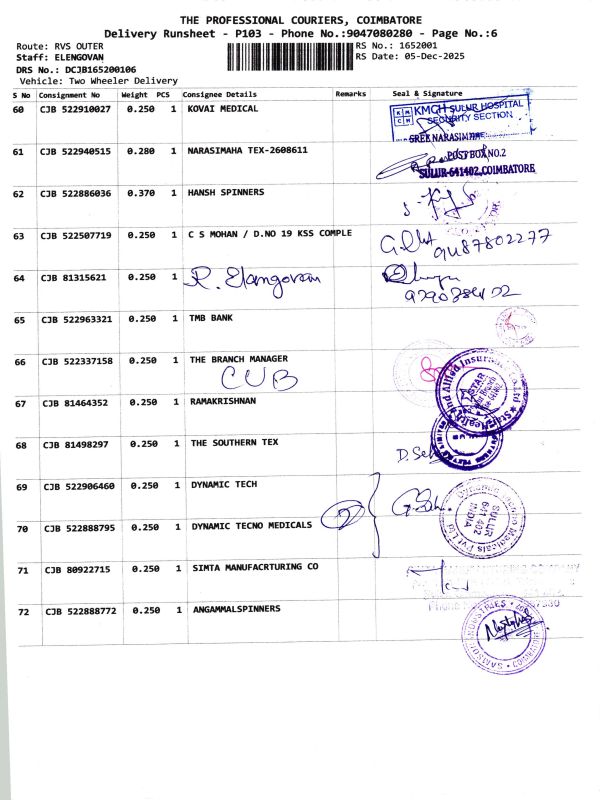 THE PROFESSIONAL COURIERS, COIMBATORE
Delivery Runsheet - P103 - Phone No.:9047080280 - Page No.:6
Route: RVS OUTER
RS No.: 1652001
Staff: ELENGOVAN
RS Date: 05-Dec-2025
DRS No.: DCJB165200106
Vehicle: Two Wheeler Delivery
S No Consignment No Weight PCS Consignee Details Remarks Seal & Signature
60 CJB 522910027 0.250 1 KOVAI MEDICAL
KMCH SULUR HOSPITAL
SECURITY SECTION
61 CJB 522940515 0.280 1 NARASIMAHA TEX-2608611
SREE NARASIMHA
POST BOX NO.2
SULUR-641402, COIMBATORE
62 CJB 522886036 0.370 1 HANSH SPINNERS
63 CJB 522507719 0.250 1 C S MOHAN / D.NO 19 KSS COMPLE
9487802277
64 CJB 81315621 0.250 1 R. Elangovan
65 CJB 522963321 0.250 1 TMB BANK
66 CJB 522337158 0.250 1 THE BRANCH MANAGER
CUB
Star Health and Allied Insurance Co. Ltd
67 CJB 81464352 0.250 1 RAMAKRISHNAN
68 CJB 81498297 0.250 1 THE SOUTHERN TEX
69 CJB 522906460 0.250 1 DYNAMIC TECH
70 CJB 522888795 0.250 1 DYNAMIC TECNO MEDICALS
Dynamic Techno Medicals Pvt Ltd
SULUR
641 402
INDIA
71 CJB 80922715 0.250 1 SIMTA MANUFACRTURING CO
72 CJB 522888772 0.250 1 ANGAMMALSPINNERS